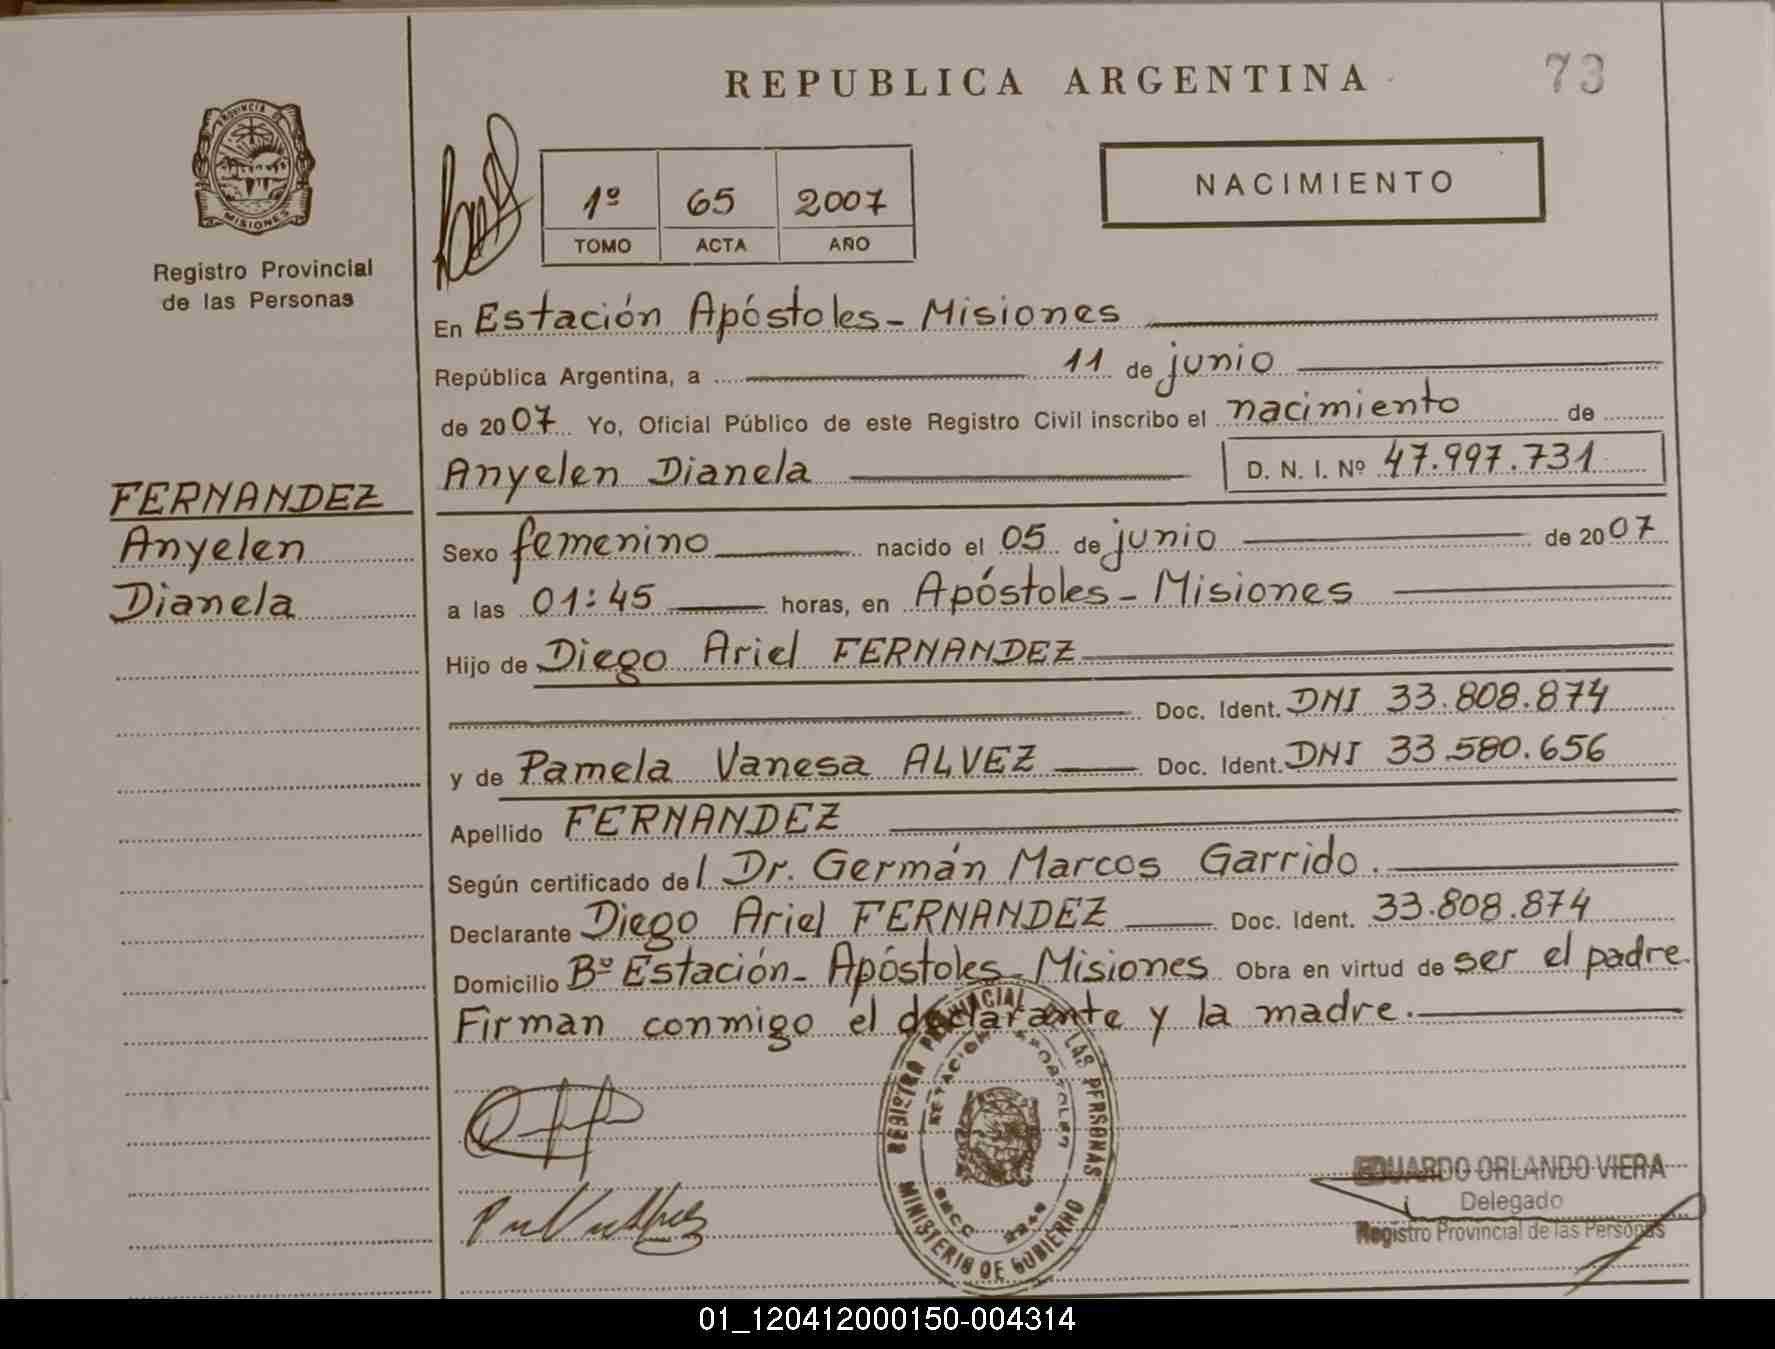 REPUBLICA ARGENTINA
73
PROVINCIA DE
MISIONES
Registro Provincial
de las Personas
1º 65 2007
TOMO ACTA AÑO
NACIMIENTO
En Estación Apóstoles - Misiones
República Argentina, a 11 de junio
de 2007 Yo, Oficial Público de este Registro Civil inscribo el nacimiento de
Anyelen Dianela D. N. I. Nº 47.997.731
FERNANDEZ
Anyelen
Dianela
Sexo femenino nacido el 05 de junio de 2007
a las 01:45 horas, en Apóstoles - Misiones
Hijo de Diego Ariel FERNANDEZ
Doc. Ident. DNI 33.808.874
y de Pamela Vanesa ALVEZ Doc. Ident. DNI 33.580.656
Apellido FERNANDEZ
Según certificado del Dr. Germán Marcos Garrido.
Declarante Diego Ariel FERNANDEZ Doc. Ident. 33.808.874
Domicilio Bº Estación - Apóstoles - Misiones Obra en virtud de ser el padre
Firman conmigo el declarante y la madre.
REGISTRO PROVINCIAL DE LAS PERSONAS
MINISTERIO DE GOBIERNO
EDUARDO ORLANDO VIERA
Delegado
Registro Provincial de las Personas
01_120412000150-004314